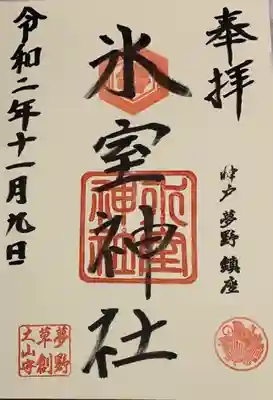 奉拝
神戸 夢野 鎮座
氷室神社
氷室
神社
令和二年十一月九日
夢野
草創